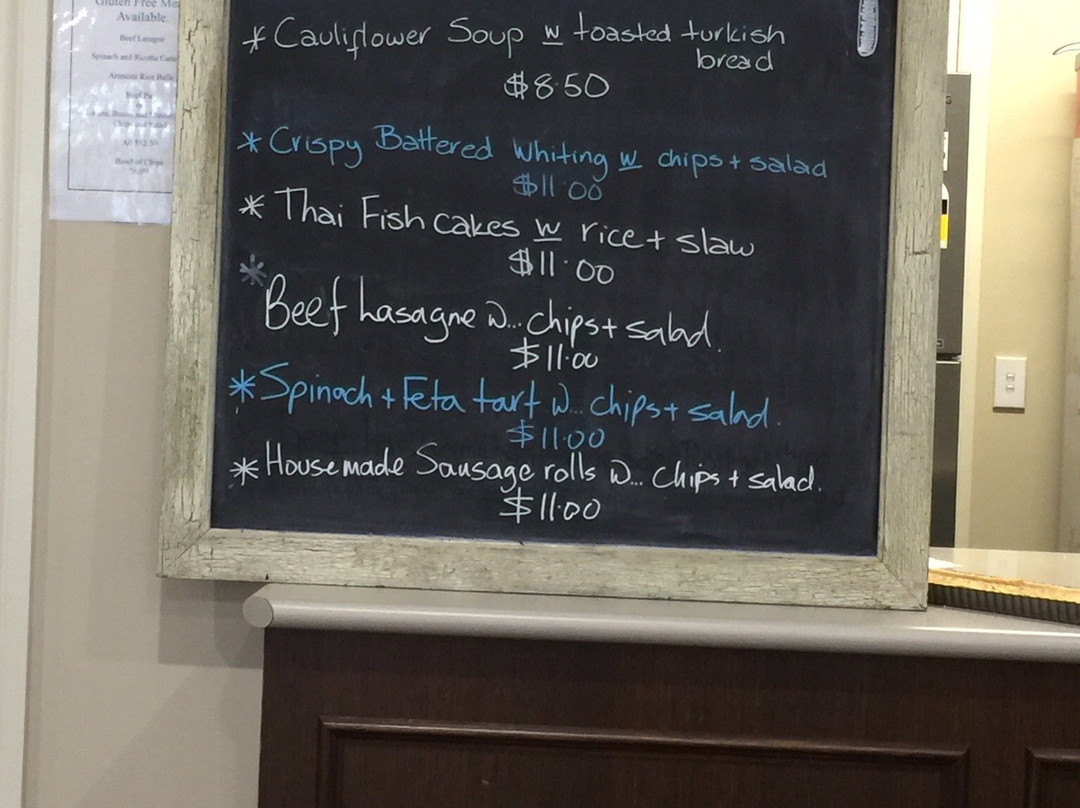 Gluten Free
Available.
Beef Lasagne
Spinach and Ricotta
Arancini Rice Balls
Beef Pie
Chips and Salad
All $12.50
Bowl of Chips
* Cauliflower Soup w toasted turkish
bread
$8.50
* Crispy Battered Whiting w chips + salad
$11.00
* Thai Fish cakes w rice + slaw
$11.00
*
Beef Lasagne w... chips + salad.
$11.00
* Spinach + Feta tart w... chips + salad.
$11.00
* Housemade Sausage rolls w... chips + salad.
$11.00